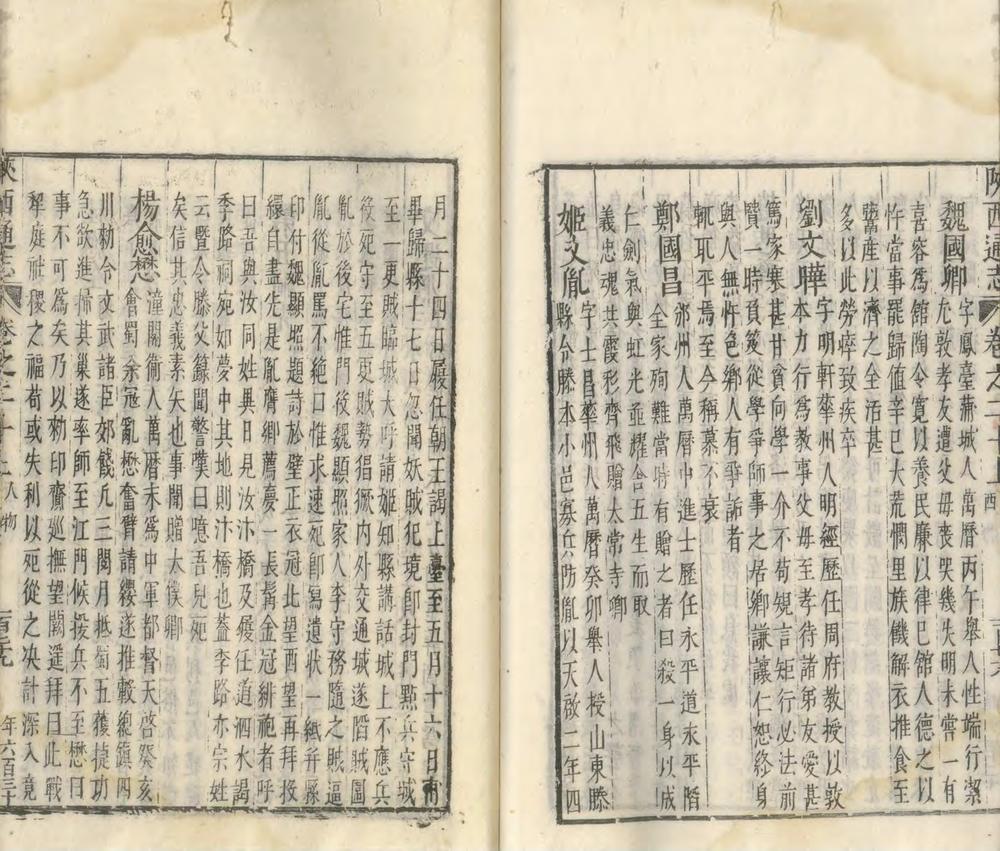 陝西通志 卷之二十上
魏國卿 字鳳臺蒲城人萬曆丙午舉人性端行潔
尤敦孝友遭父母喪哭幾失明未嘗一有
喜容爲館陶令寬以養民廉以律巳館人德之以
忤當事罷歸值辛巳大荒憫里族饑解衣推食至
鬻產以濟之全活甚
多以此勞瘁致疾卒
劉文曄 字明軒華州人明經歷任周府教授以敦
本力行爲教事父母至孝待諸弟友愛甚
篤家寒甚甘貧向學一介不苟規言矩行必法前
賢一時負笈從學爭師事之居鄉謙讓仁恕終身
與人無忤色鄉人有爭訴者
輒耻平焉至今稱慕不衰
鄭國昌 邠州人萬曆中進士歷任永平道永平陷
全家殉難當時有贈之者曰殺一身以成
仁劍氣與虹光並耀舍五生而取
義忠魂共霞彩齊飛贈太常寺卿
姬文胤 字士昌華州人萬曆癸卯舉人授山東滕
縣令滕本小邑寡兵防胤以天啟二年四
月二十四日履任朝王謁上臺至五月十六日甫
畢歸縣十七日忽聞妖賊犯境卽封門點兵守城
至一更賊臨城大呼請姬知縣講話城上不應兵
役死守至五更賊勢猖獗内外交通城遂陷賊圍
胤於後宅惟門役魏顯照家人李守務隨之賊逼
胤從胤罵不絕口惟求速死卽寫遺狀一紙并縣
印付魏顯照題詩於壁正衣冠北望酉望再拜投
繯自盡先是胤膺卿薦慶一長鬚金冠緋袍者呼
曰吾與汝同姓異日見汝汴橋及履任道泗水謁
季路祠宛如夢中其地則汴橋也蓋季路亦宗姓
云暨令滕父籙聞警嘆曰噫吾兒死
矣信其忠義素矢也事聞贈太僕卿
楊愈懋 潼關衛人萬曆末爲中軍都督天啓癸亥
會蜀余寇亂懋奮臂請纓遂推轂總鎮四
川勅令文武諸臣郊餞凡三閱月抵蜀五獲捷功
急欲進掃其巢遂率師至江門候援兵不至懋曰
事不可爲矣乃以勑印齎廵撫望闕遥拜曰此戰
犂庭社稷之福苟或失利以死從之决計深入竟
陝西通志 卷之二十上 人物